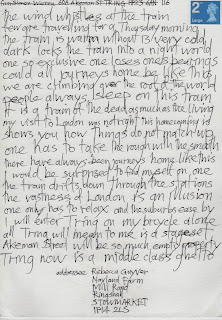 Akeman St TRING HP23 6AH 116
2
Large
the wind whistles at the train
we are travelling for a Thursday morning
the train is human without its very odd
dark locks the train into a night world
one so exclusive one loses one's bearings
could all journeys home be like this
we are climbing over the roof of the world
people always sleep on this train
is a train for the dead as much as the living
my visit to London was not right this homecoming id
shows you how things do not match up
one has to take the rough with the smooth
there have always been journeys home like this
I would be surprised to find myself on one
the train drifts down through the stations
the vastness of London is an illusion
one only has to relax and the suburbs ease by
I will enter Tring on my bicycle alone
all Tring will mean to me is a stageset
Akeman Street will be so much empty property
Tring now is a middle class ghetto
addressee Rebecca Guyver
Moyland Farm
Mill Road
Ringshall
STOWMARKET
IP14 2LS